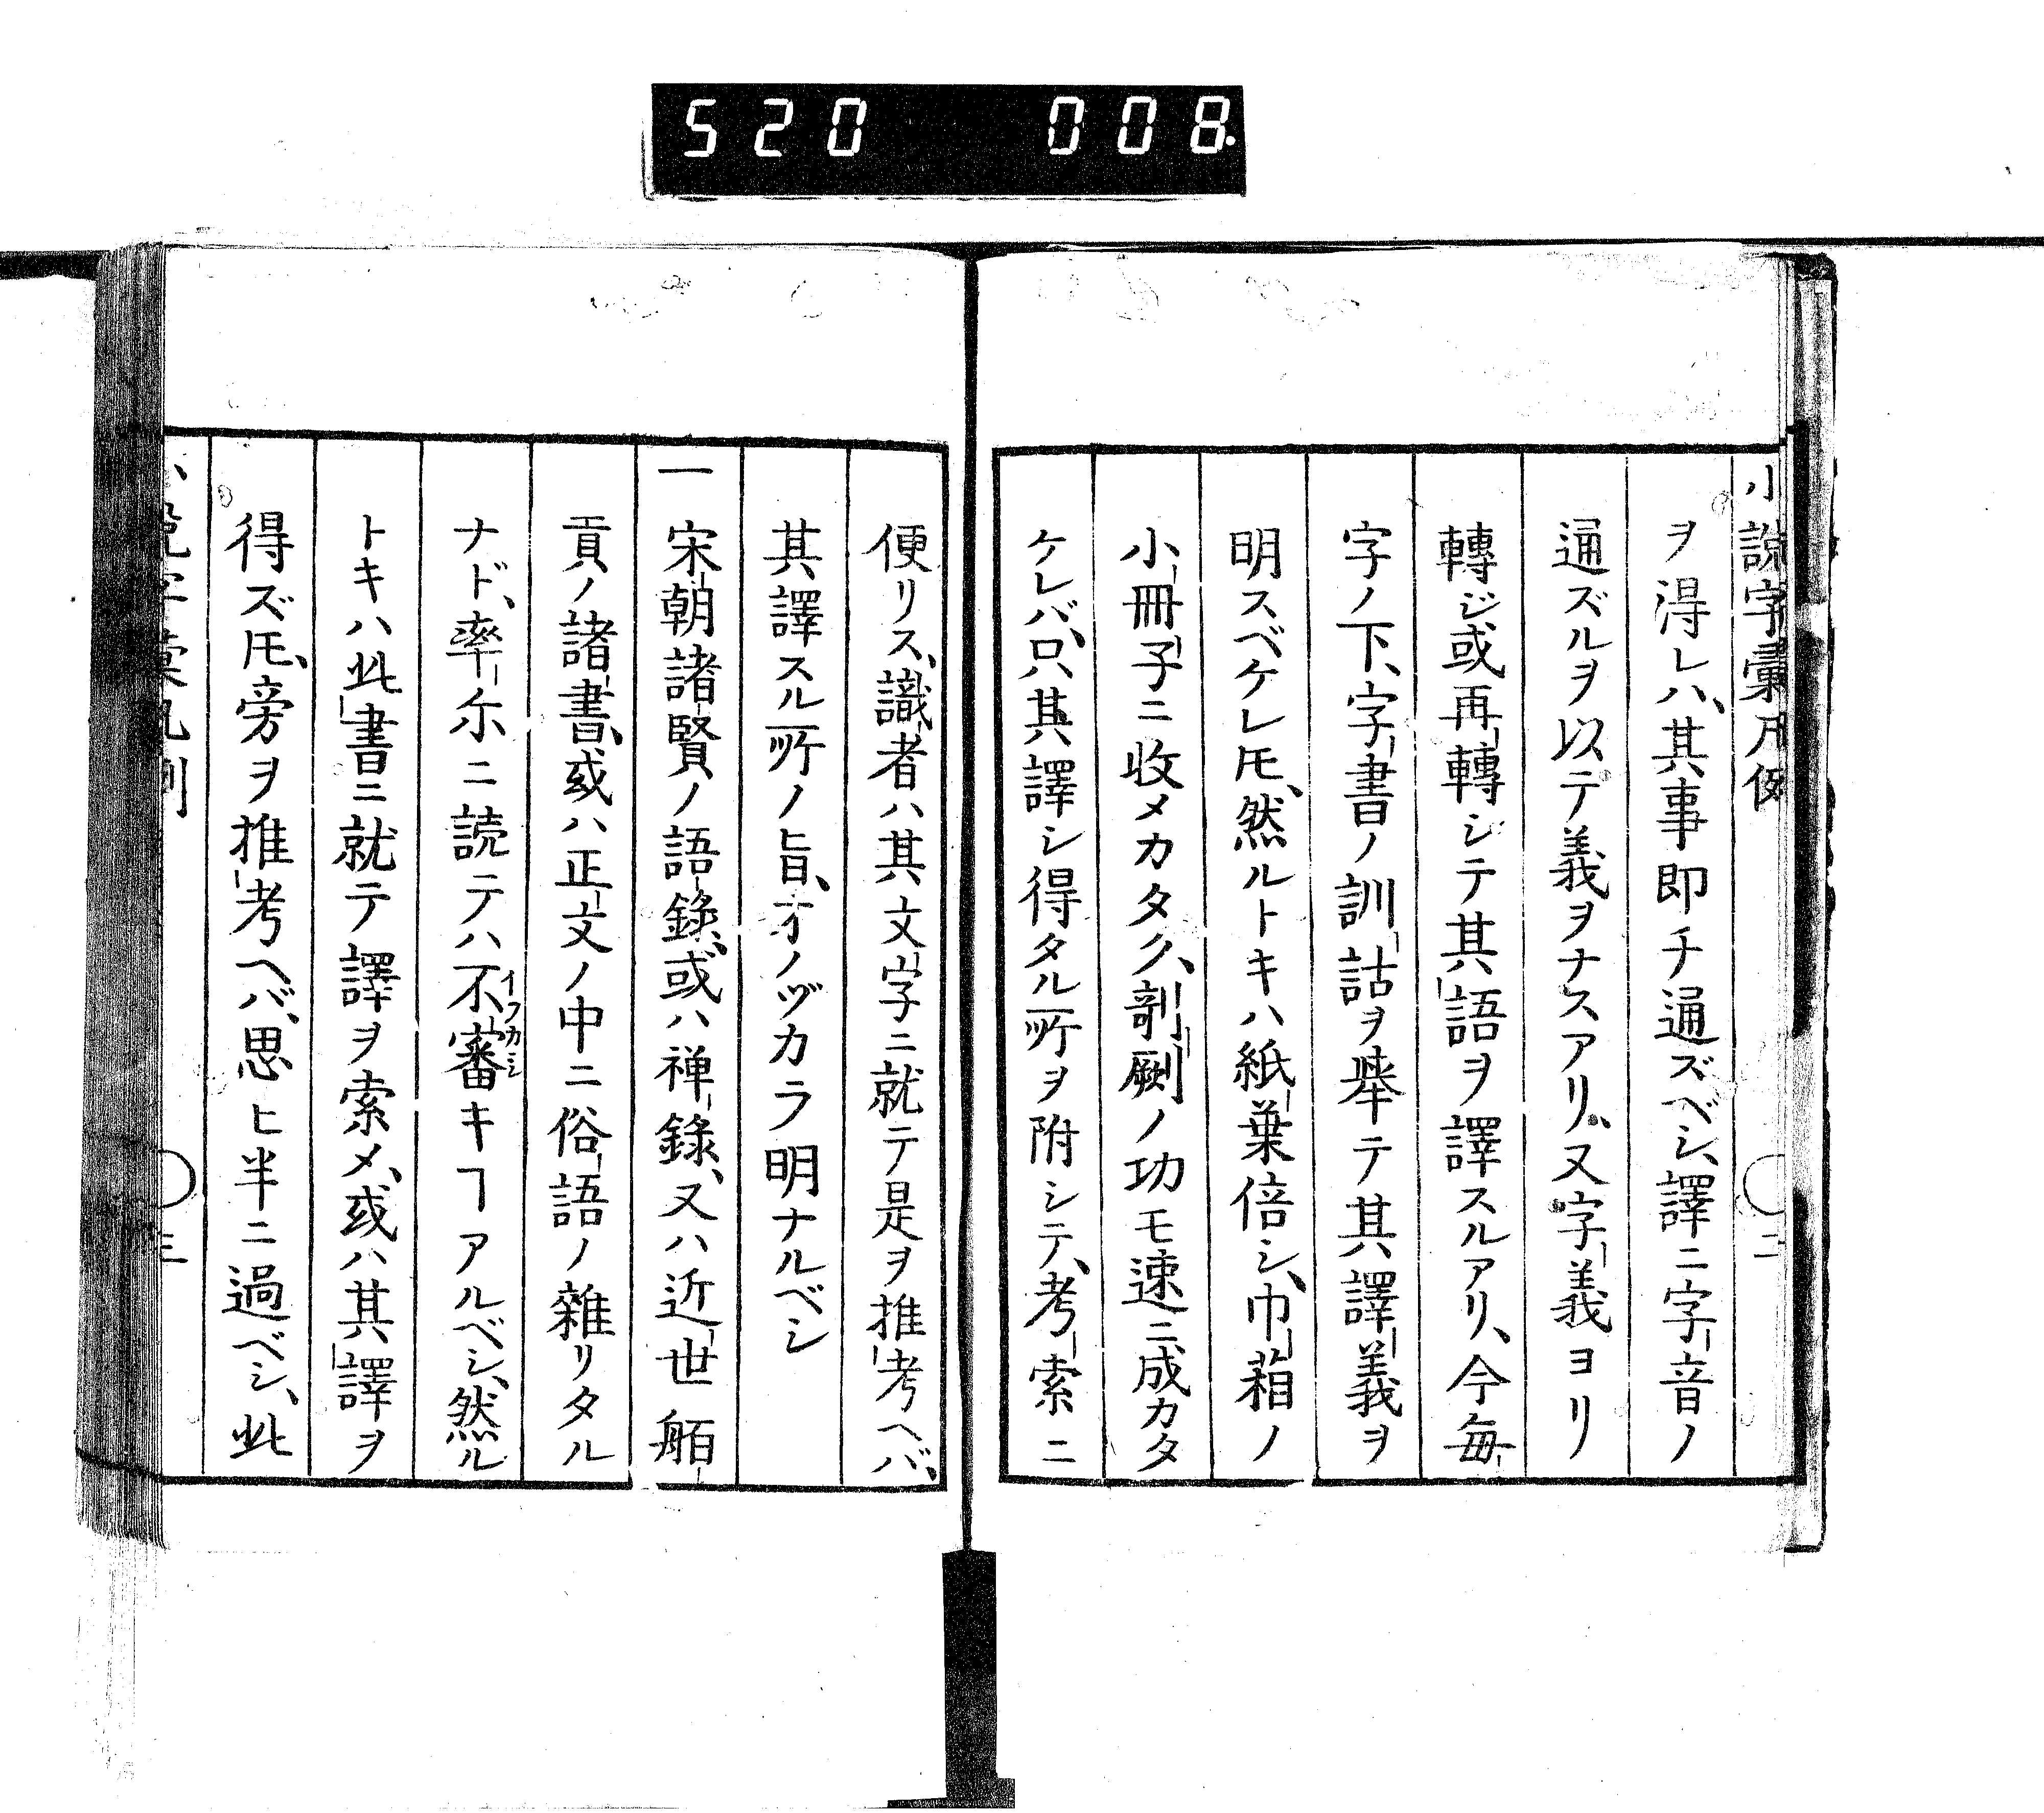 520 008.
小說字彙凡例 〇 二
ヲ得レハ、其事即チ通ズベシ、譯ニ字音ノ
通ズルヲ以テ義ヲナスアリ、又字義ヨリ
轉ジ或再轉シテ其語ヲ譯スルアリ、今每
字ノ下、字書ノ訓詁ヲ舉テ其譯義ヲ
明スベケレ𪜈、然ルトキハ紙葉倍シ、巾箱ノ
小冊子ニ收メカタク、剞劂ノ功モ速ニ成カタ
ケレバ、只其譯シ得タル所ヲ附シテ、考索ニ
便リス、識者ハ其文字ニ就テ是ヲ推考ヘバ、
其譯スル所ノ旨、オノヅカラ明ナルベシ
一宋朝諸賢ノ語錄、或ハ禅錄、又ハ近世舶
貢ノ諸書、或ハ正文ノ中ニ俗語ノ雜リタル
ナド、率尓ニ読テハ不審キヿアルベシ、然ル
イフカシ
トキハ此書ニ就テ譯ヲ索メ、或ハ其譯ヲ
得ズ𪜈、旁ヲ推考ヘバ、思ヒ半ニ過ベシ、此
小說字彙凡例 〇 三